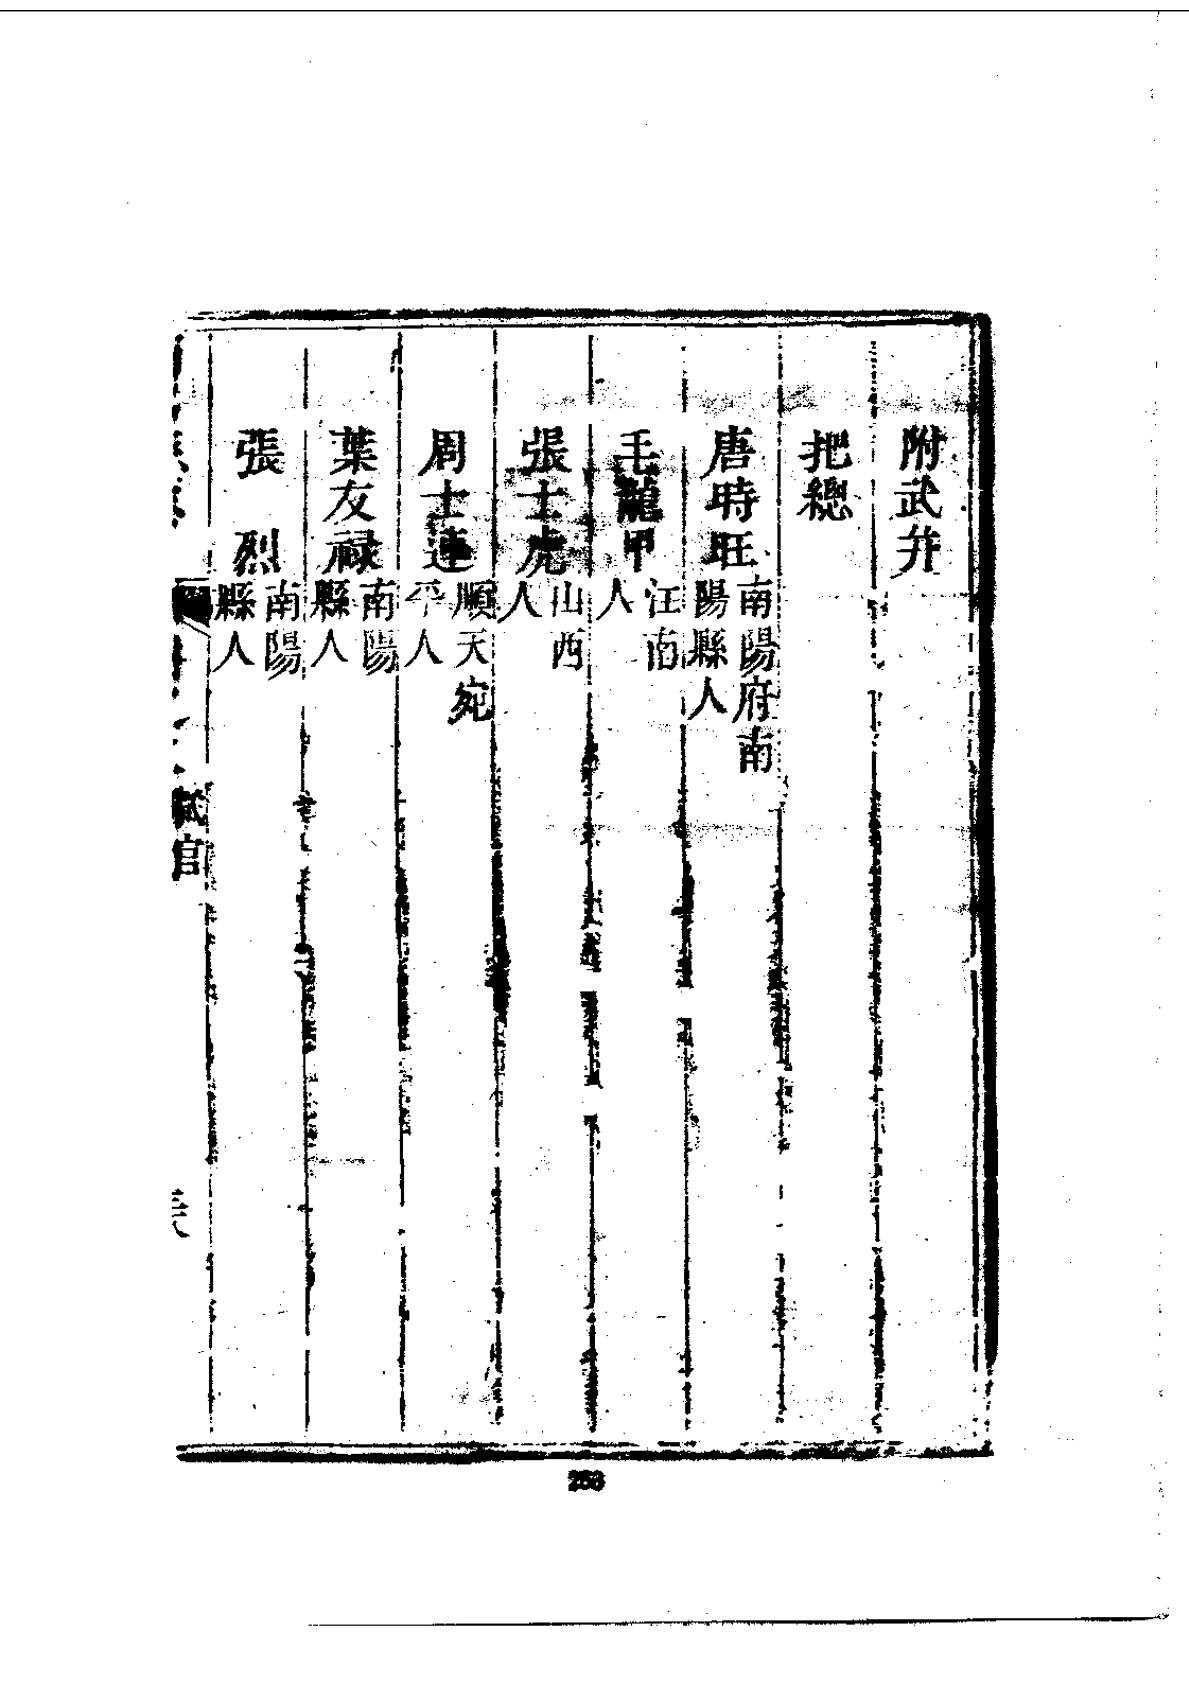 附武弁
把總
唐時旺 南陽府南陽縣人
毛龍甲 江南人
張士虎 山西人
周士連 順天宛平人
葉友祿 南陽縣人
張 烈 南陽縣人
官
253